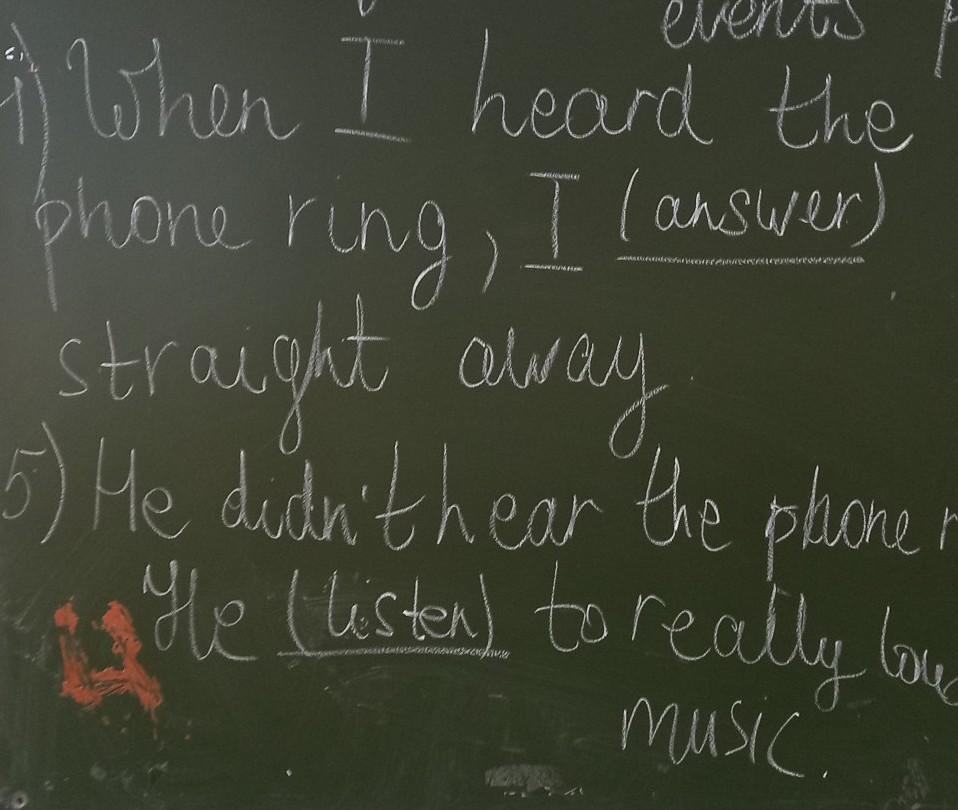 events
4) When I heard the
phone ring, I (answer)
straight away
5) He didn't hear the phone r
He (listen) to really lou
music.